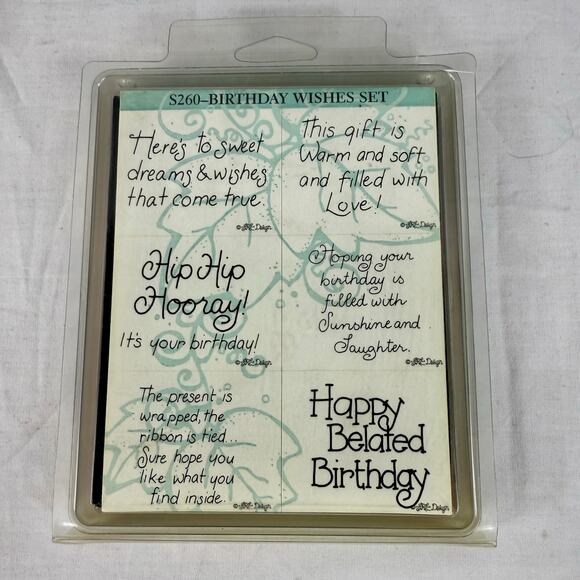 S260–BIRTHDAY WISHES SET
Here's to sweet
dreams & wishes
that come true.
This gift is
Warm and soft
and filled with
Love!
Hip Hip
Hooray!
It's your birthday!
Hoping your
birthday is
filled with
Sunshine and
Laughter.
The present is
wrapped, the
ribbon is tied...
Sure hope you
like what you
find inside.
Happy
Belated
Birthday